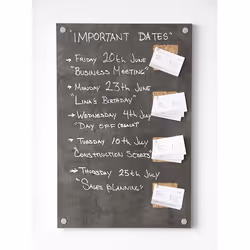 "IMPORTANT DATES"
→ FRIDAY 20TH JUNE
"BUSINESS MEETING"
→ MONDAY 23TH JUNE
"LINA'S BIRTHDAY"
→ WEDNESDAY 4TH JULY
"DAY OFF
→ TUESDAY 10TH JULY
"CONSTRUCTION
→ THURSDAY 25TH JULY
"SALES PLANNING"